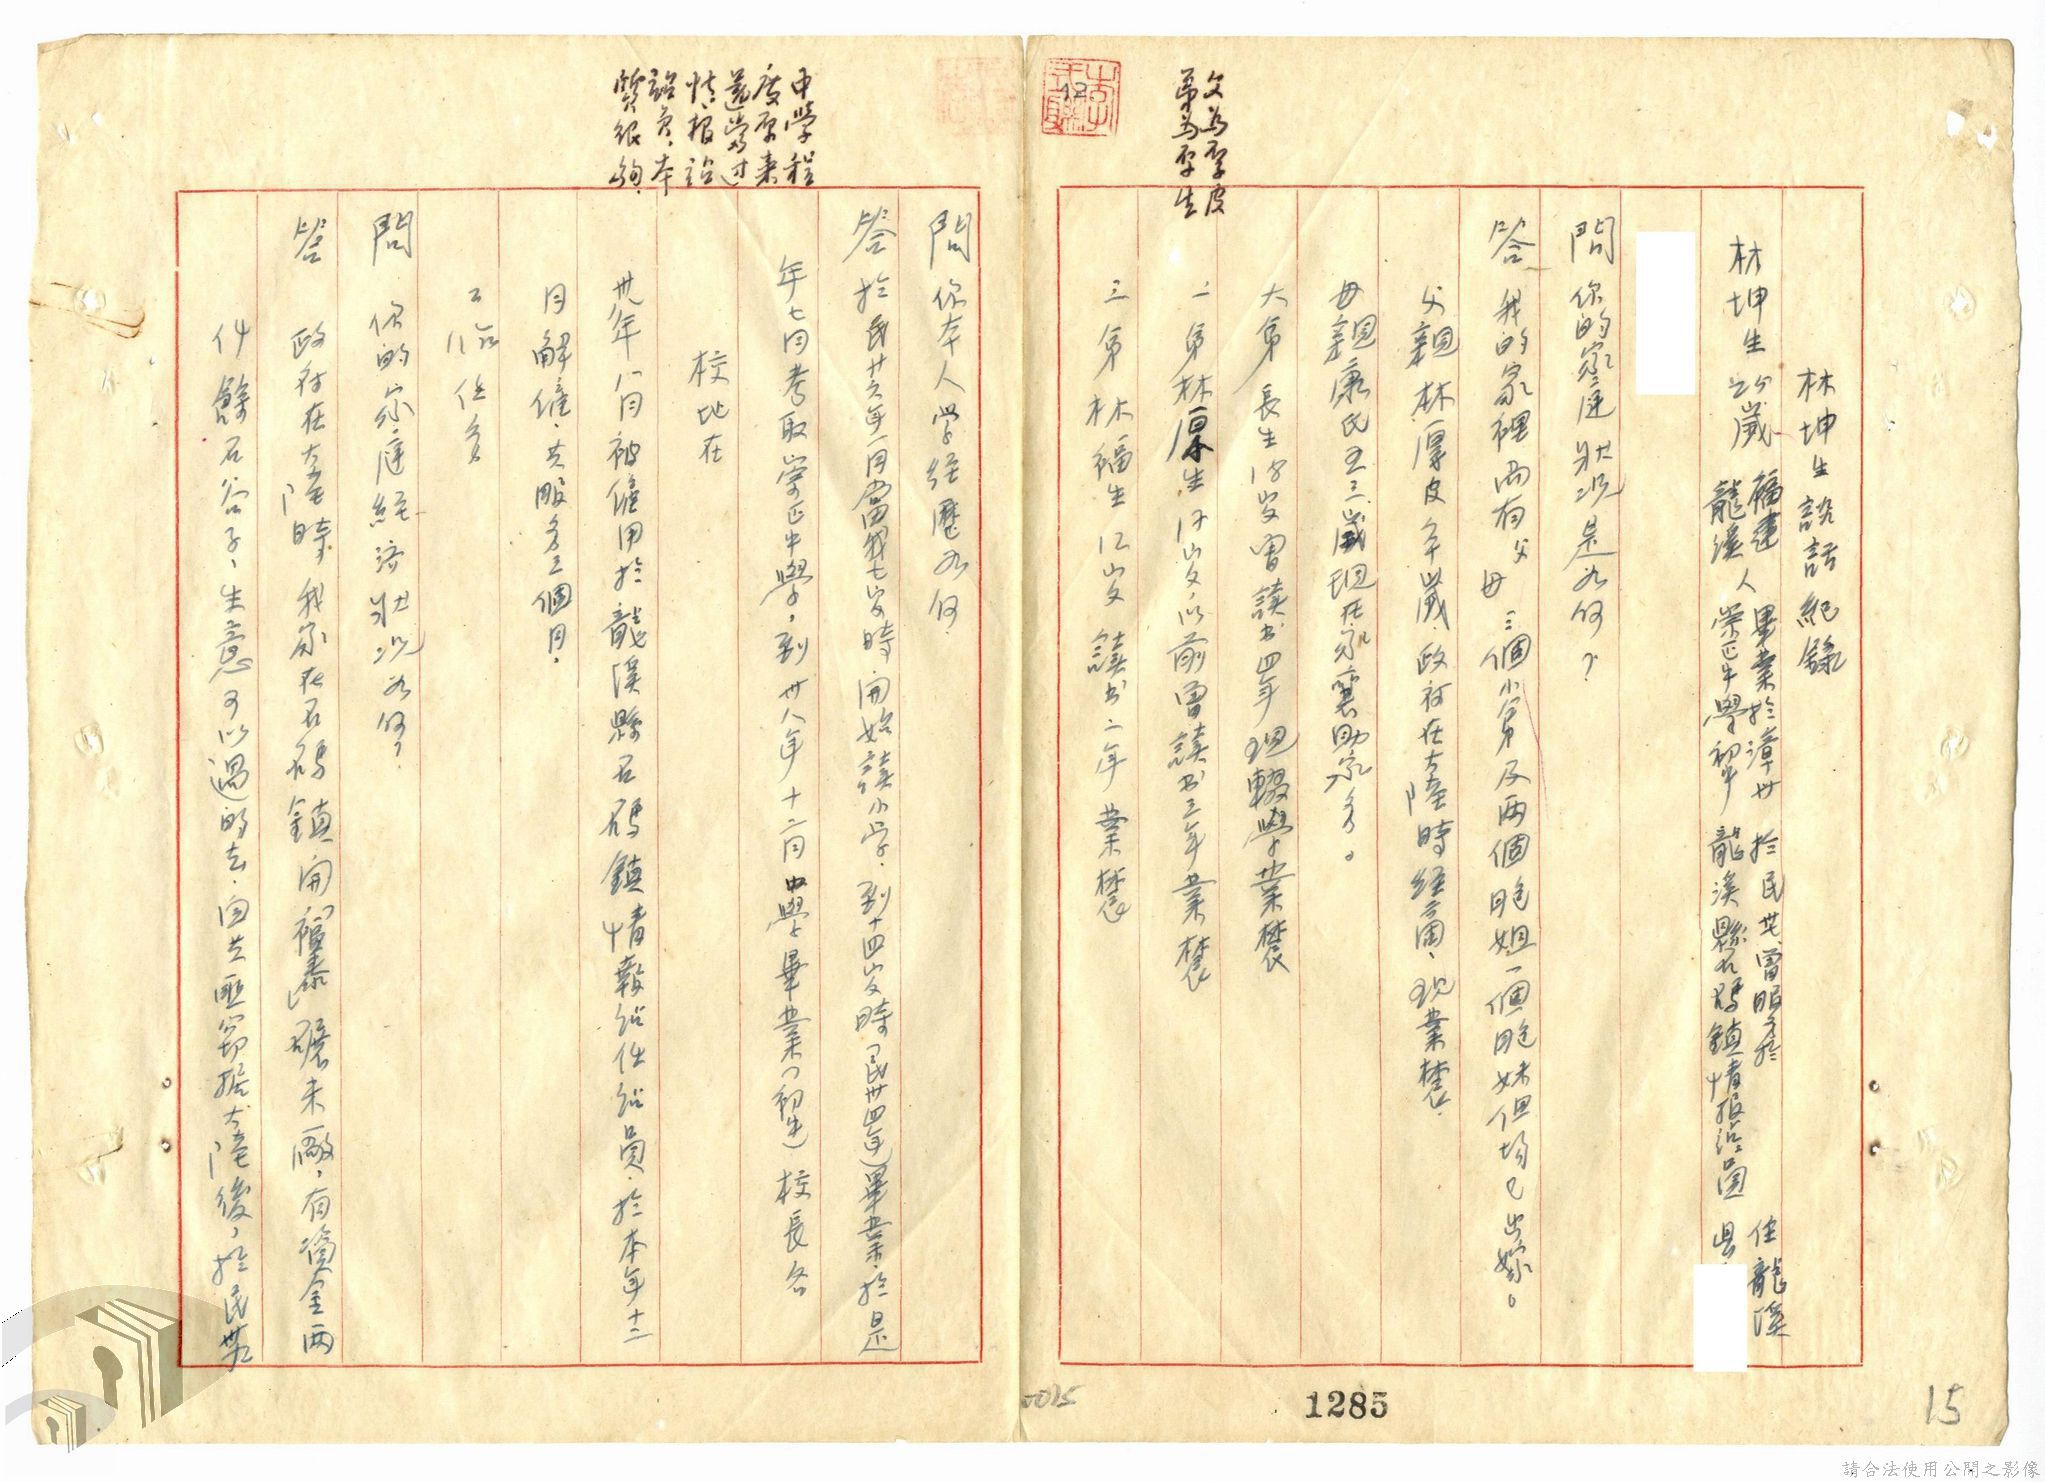 林坤生談話紀錄
林坤生 歲 福建龍溪人 畢業於漳州崇正中學初中 於民卅 曾服務於龍溪縣石碼鎮情报組組員 住龍溪縣
問 你的家庭狀況是如何?
答 我的家裡尚有父母三個小弟及兩個胞姐一個胞妹但均已出嫁。
父親林厚皮 歲政府在大陸時經商、現業農.
母親康氏五三歲現在家襄助家务。
大弟 長生 18岁曾讀书四年現輟學業農
二弟林厚生 岁,以前曾讀书三年業農
三弟林福生 12岁 讀书二年業農
父為厚皮
弟為厚生
12
1285
15
0015
問 你本人學經歷如何.
答 於民廿六年一月當我七岁時開始讀小学.到十四岁時(民卅四年)畢業.於是
年七月考取崇正中學,到卅八年十二月中學畢業(初中)校長名
校址在
卅八年八月被僱用於龍溪縣石碼鎮情報組任組員.於本年十二
月解僱、共服务三個月.
工作任务
問 你的家庭經济狀况如何?
答 政府在大陸時我家在石碼鎮開「福泰」碾米廠,有資金兩
仟餘石谷子,生意可以過的去.因共匪窃据大陸後,於民
中學程
度原来
還當过
情报組
組員、本
質很夠.
請合法使用公開之影像